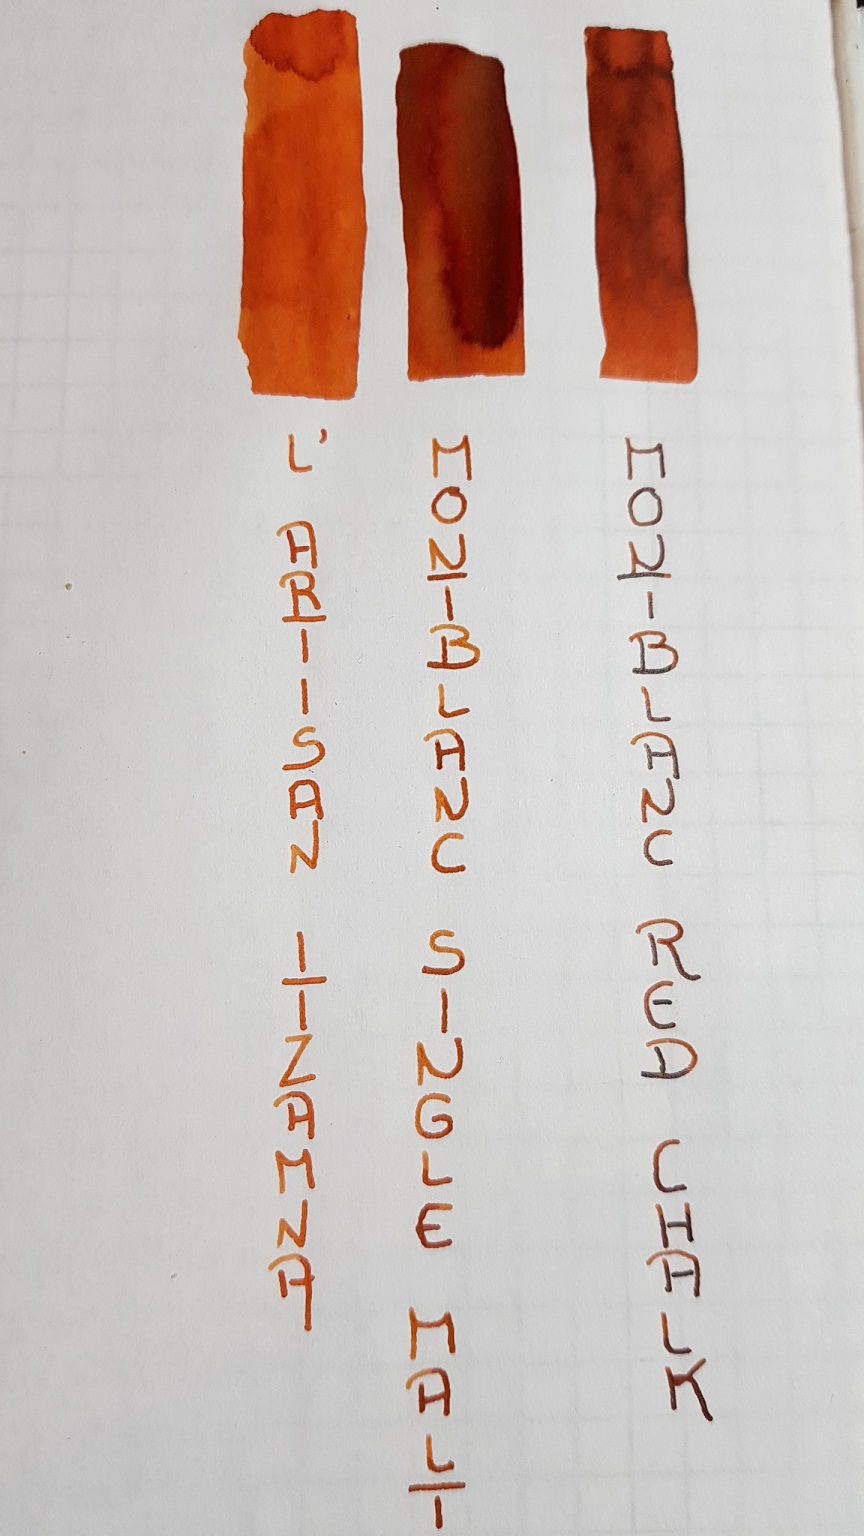 L' ARTISAN ITZAMNA
MONTBLANC SINGLE MALT
MONTBLANC RED CHALK